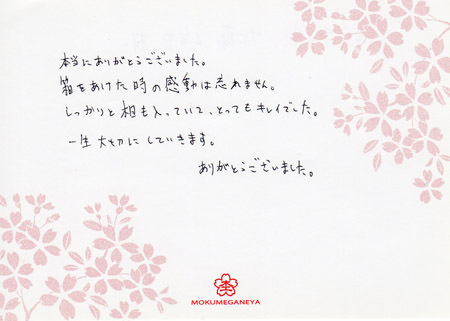 本当にありがとうございました。
箱をあけた時の感動は忘れません。
しっかりと相も入っていて、とってもキレイでした。
一生大切にしていきます。
ありがとうございました。
MOKUMEGANEYA